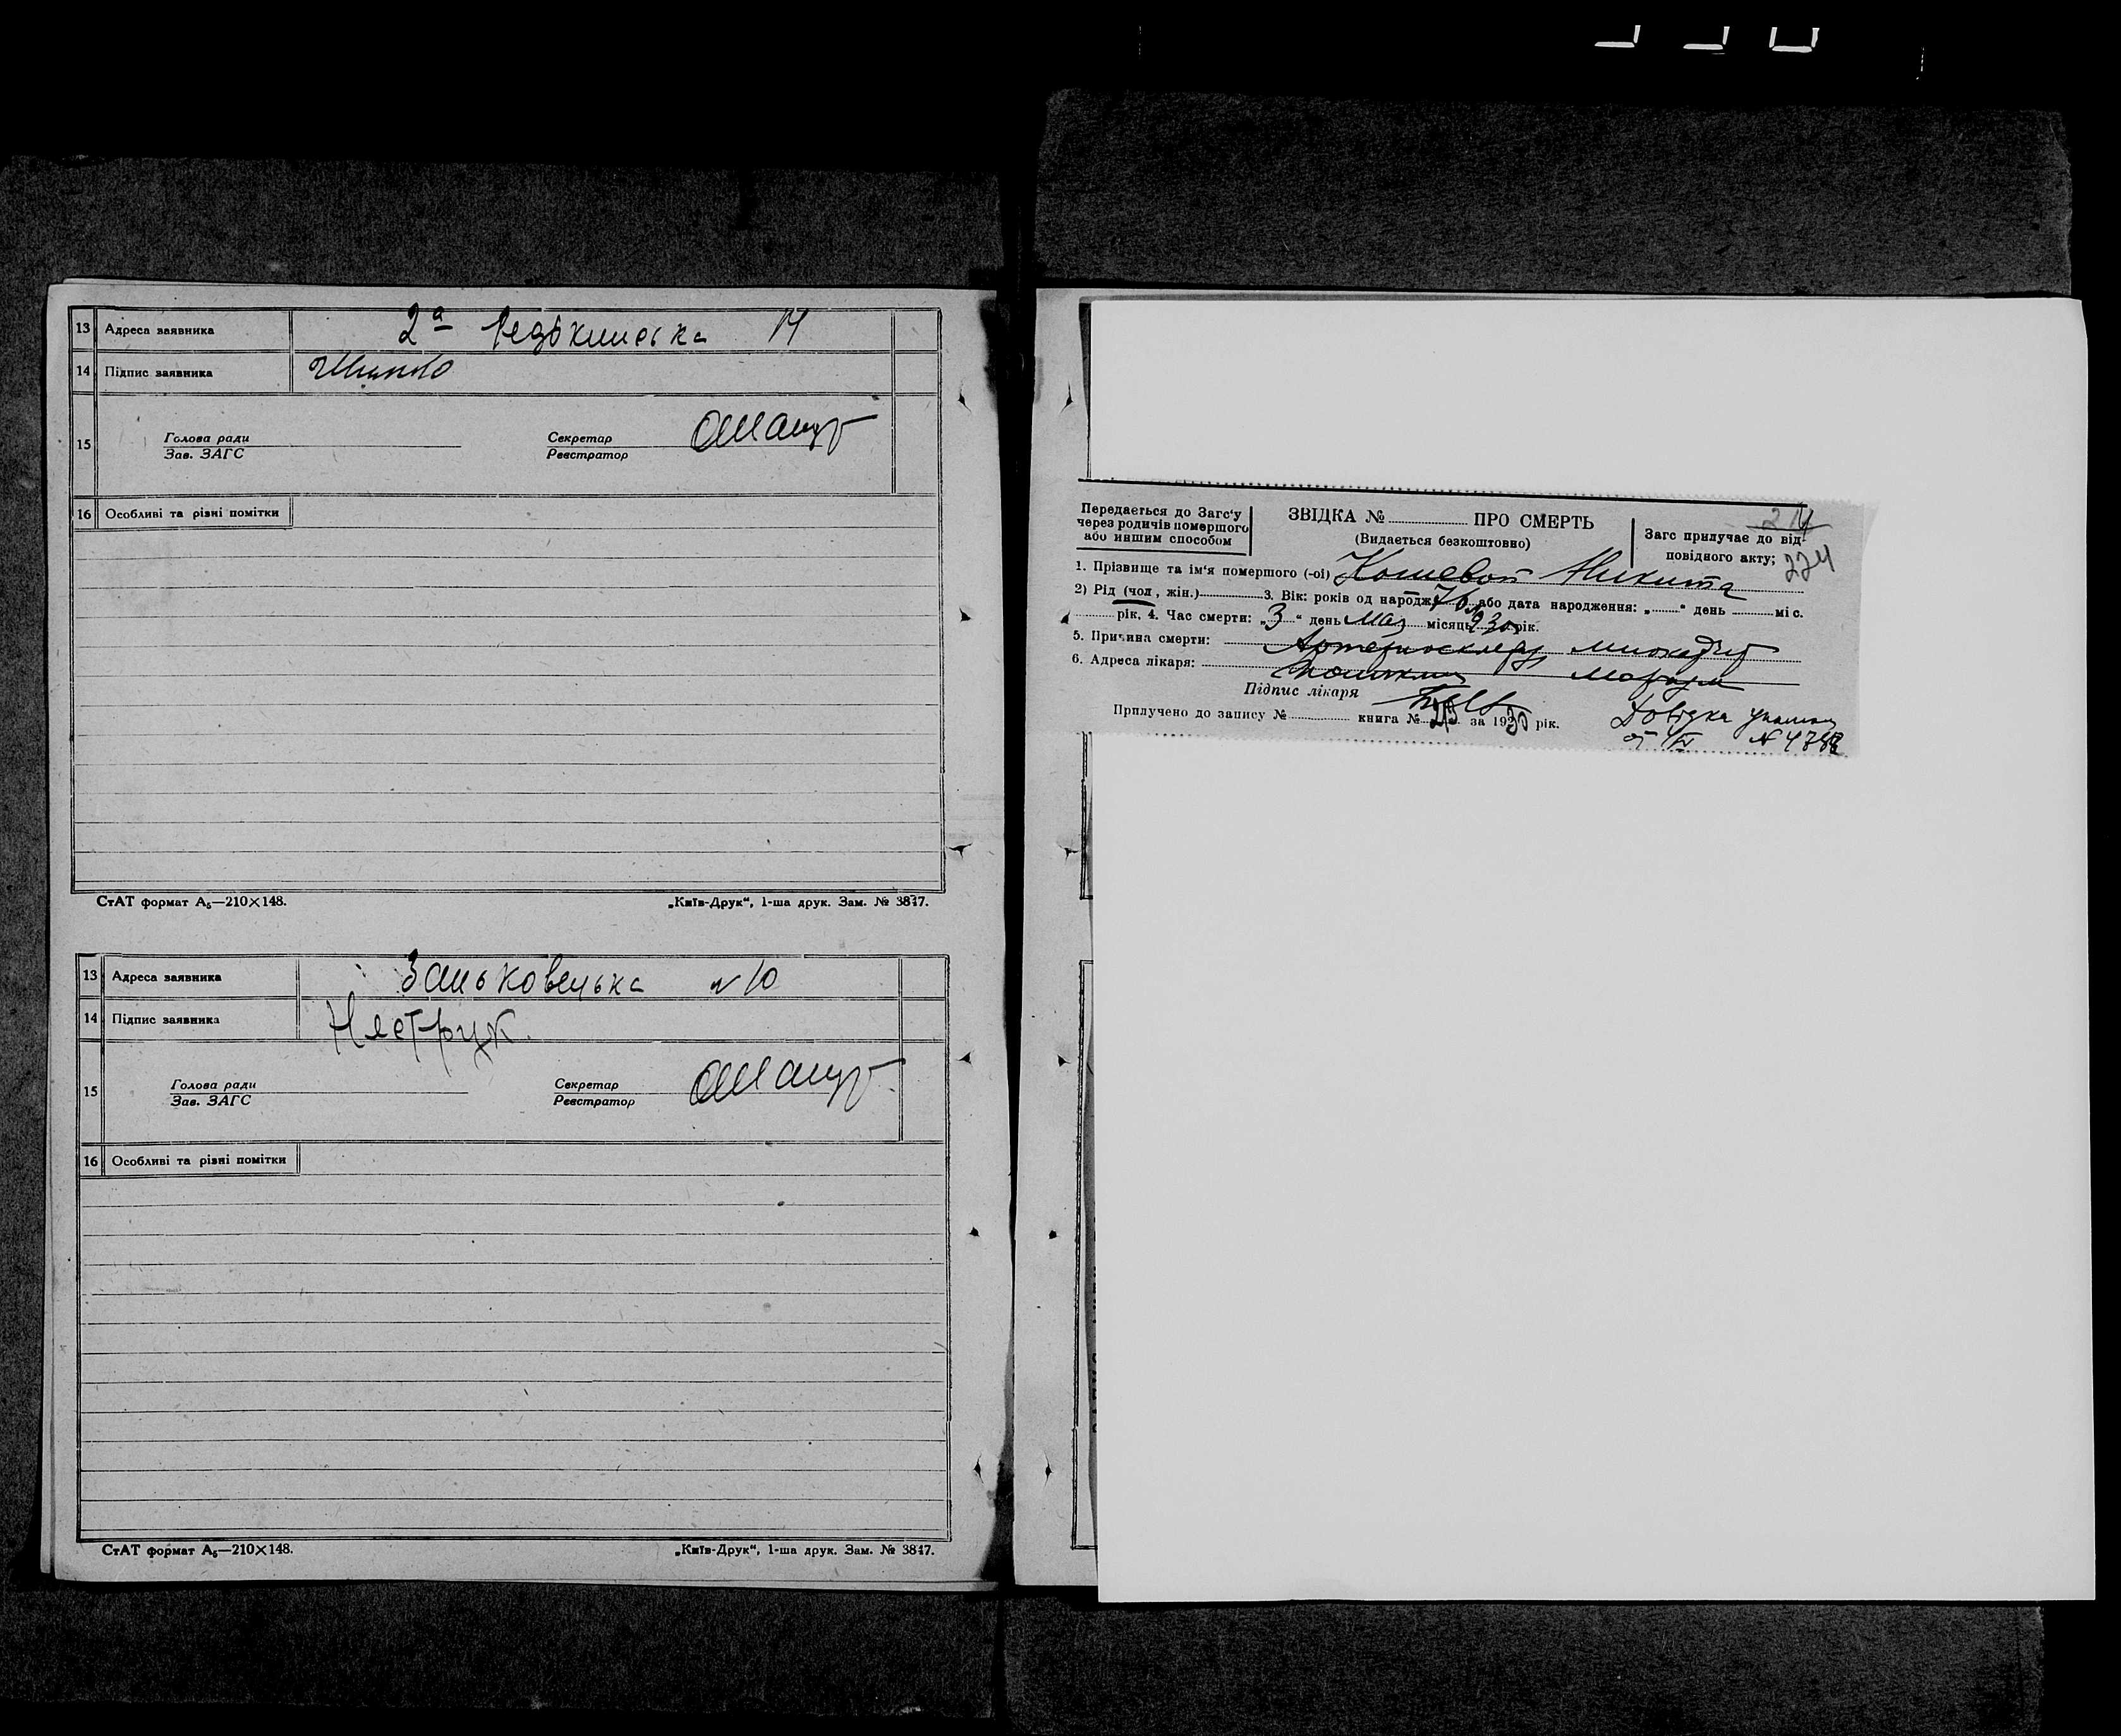 13 Адреса заявника 2а 14
14 Підпис заявника
15 Голова ради Секретар
Зав. ЗАГС Реєстратор
16 Особливі та різні помітки
СтАТ формат А₅—210×148. „Київ-Друк“, 1-ша друк. Зам. № 3847.
13 Адреса заявника Заньковецька № 10
14 Підпис заявника Неструк.
15 Голова ради Секретар
Зав. ЗАГС Реєстратор
16 Особливі та різні помітки
СтАТ формат А₅—210×148. „Київ-Друк“, 1-ша друк. Зам. № 3847.
Передається до Загс'у
через родичів померлого
або иншим способом
ЗВІДКА № ПРО СМЕРТЬ
(Видається безкоштовно)
Загс прилучае до від-
повідного акту; 224
1. Прізвище та ім'я померлого (-ої) Кошевой Никита
2) Рід (чол, жін.) 3. Вік: років од народж. 76 або дата народження: „ “ день міс.
рік, 4. Час смерти: „3“ день мая місяць 930 рік.
5. Причина смерти: Артериосклероз миокардит
6. Адреса лікаря:
Підпис лікаря
Прилучено до запису № книга № 25 за 1930 рік.
Довідка